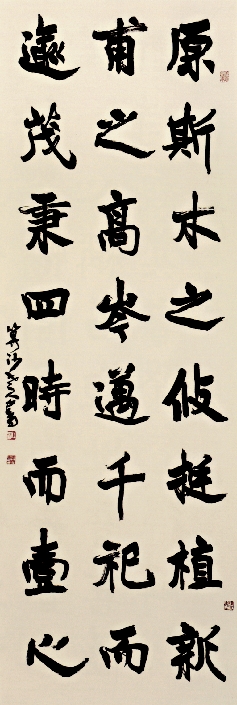 原斯木之攸挺植新
甫之高岑邁千祀而
逾茂秉四時而壹心